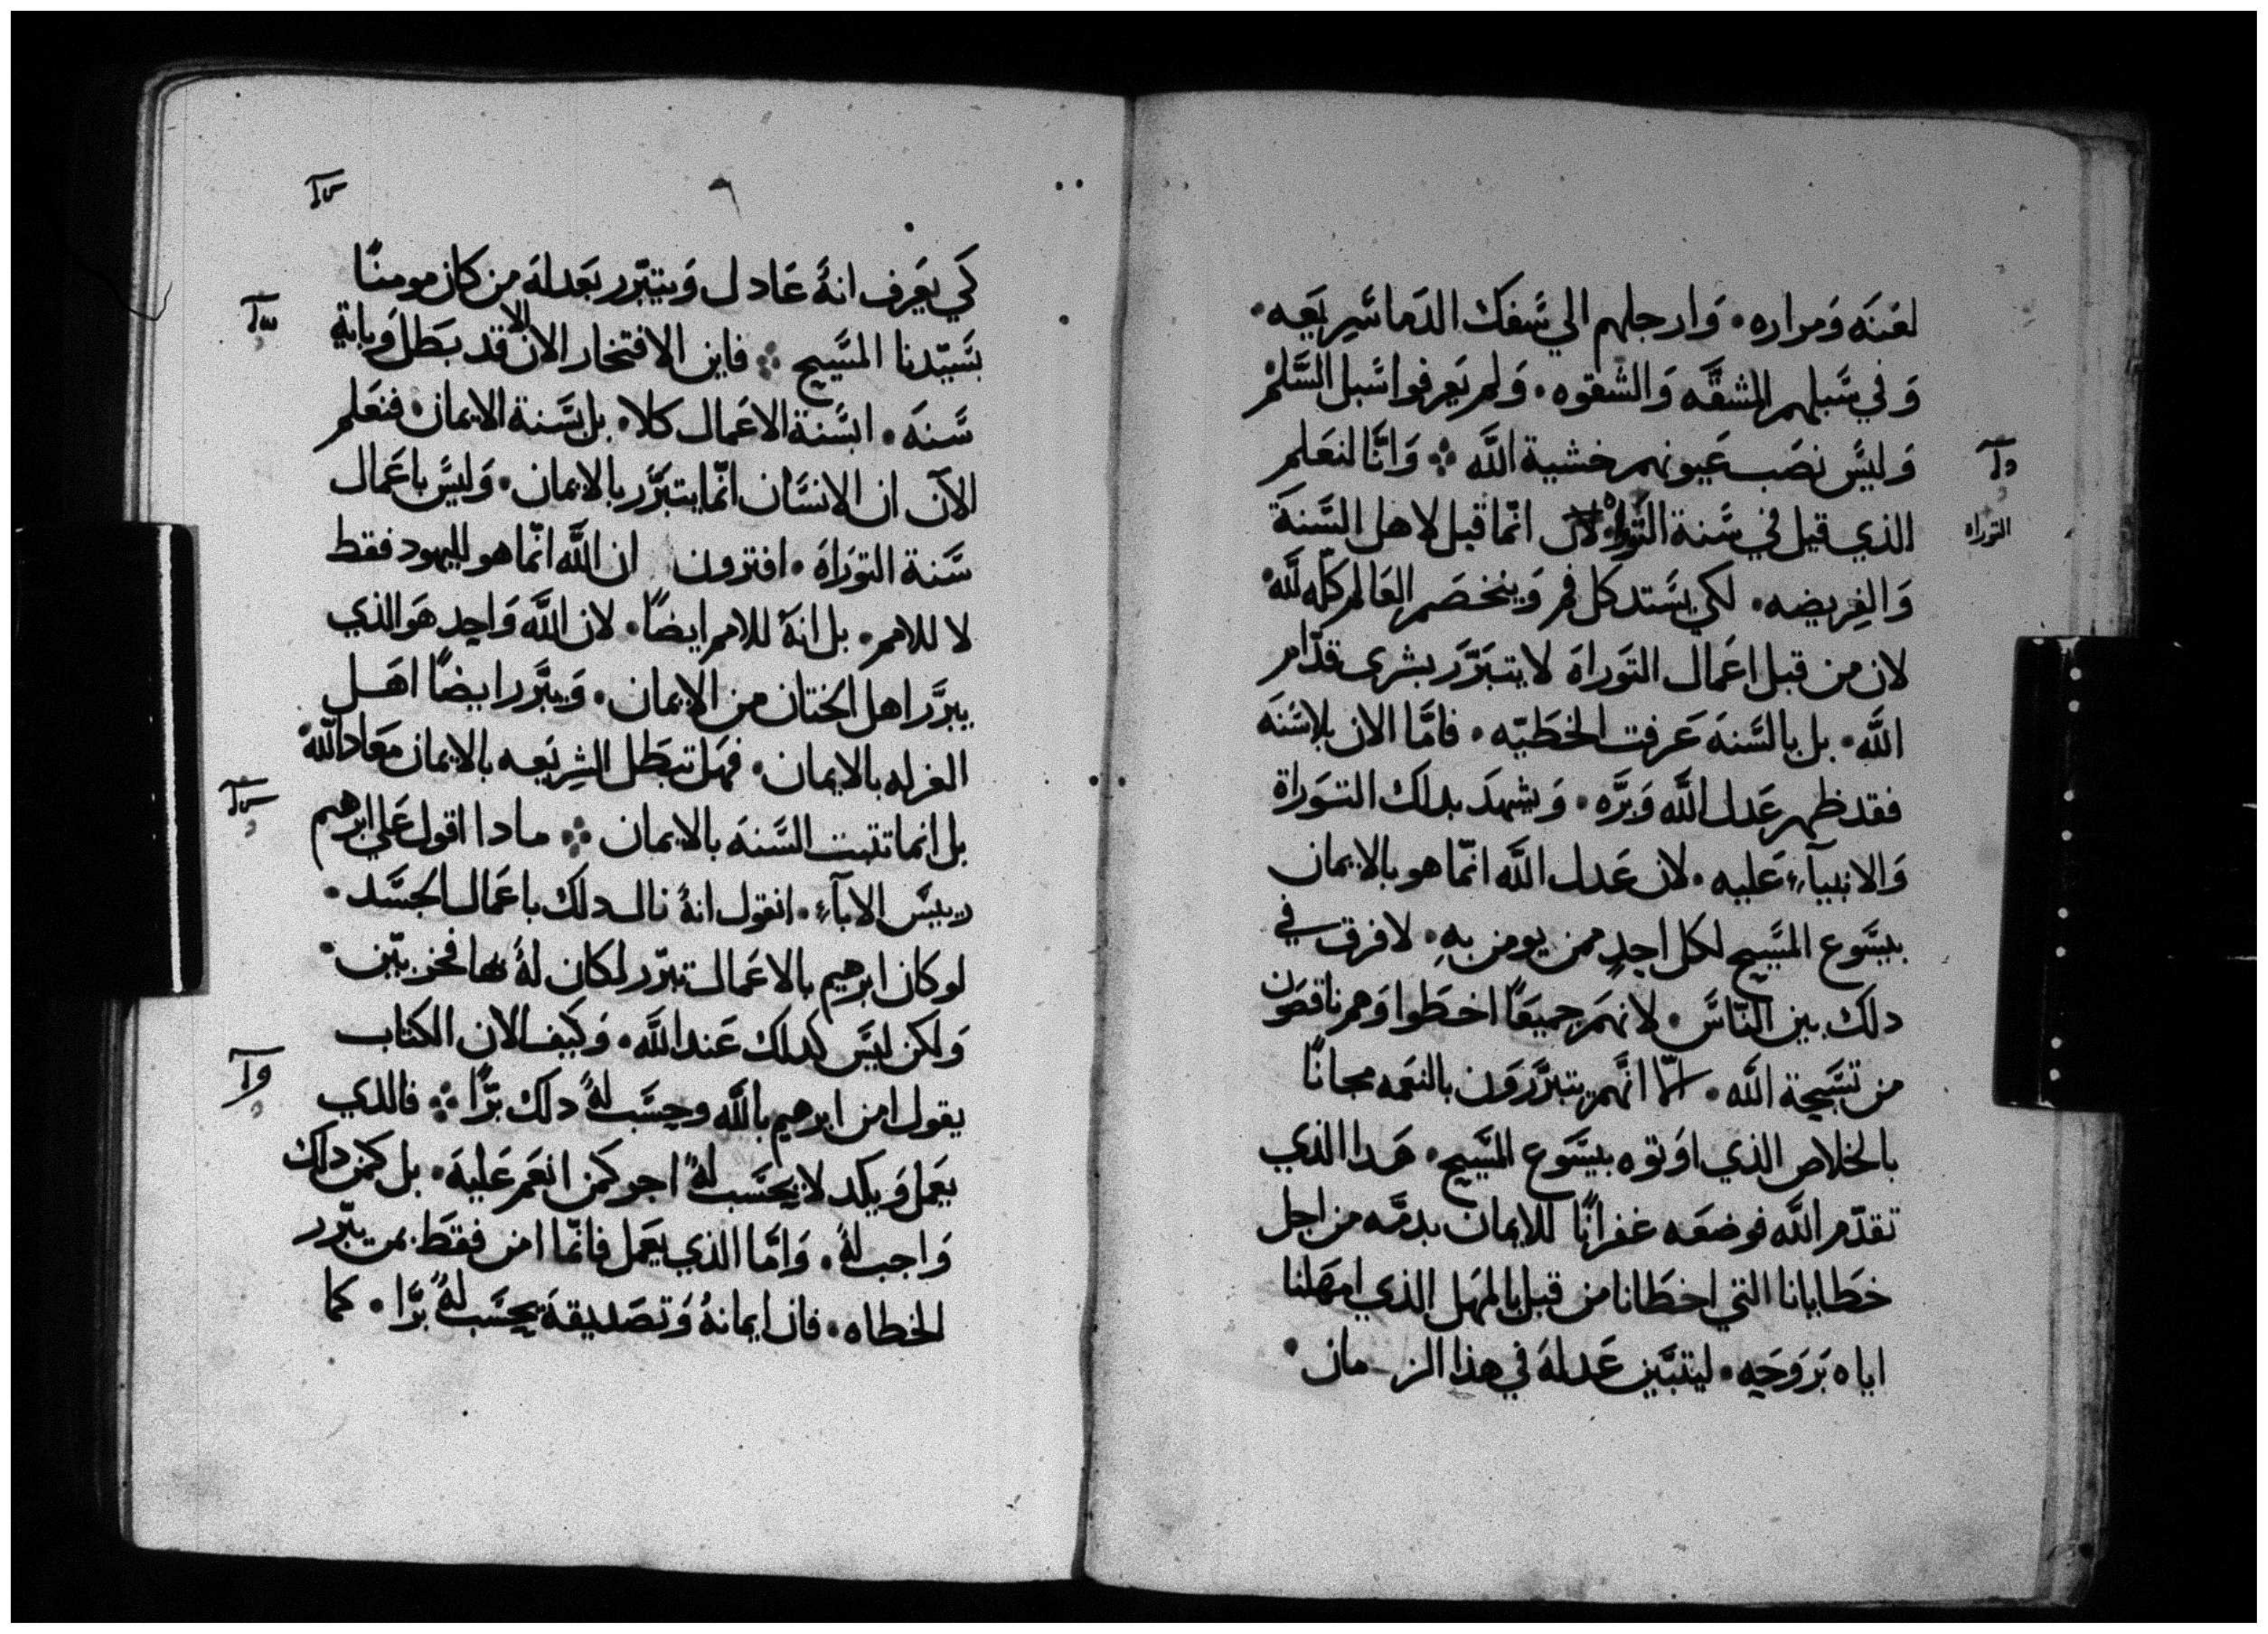 لعنه ومراره • وارجلهم الي سفك الدما سريعه •
وفي سبلهم المشقه والشقوه • ولم يعرفوا سبل السلم
وليس نصب عيونهم خشية الله ܀ وانا لنعلم
الذي قيل في سنة التوراه انما قيل لاهل السنة
التوراه
والفريضه • لكي يستد كل فم وينخصم العالم كله لله •
لان من قبل اعمال التوراة لا يتبرر بشري قدام
الله • بل بالسنة عرفت الخطيه • فاما الان بلا سنه
فقد ظهر عدل الله وبره • ويشهد بدلك التوراة
والانبيآء عليه • لان عدل الله انما هو بالايمان
بيسوع المسيح لكل احد ممن يومن به • لا فرق في
دلك بين الناس • لانهم جميعًا اخطوا وهم ناقصون
من تسبحة الله • انهم يتبررون بالنعمه مجانًا
بالخلاص الذي اوتوه بيسوع المسيح • هدا الذي
تقدم الله فوضعه غفرانًا للايمان بدمه من اجل
خطايانا التي اخطانا من قبل بالمهل الذي امهلنا
اياه بروحه • ليتبين عدله في هذا الزمان •
٦
كي يعرف انهُ عادل ويتبرر بعدله من كان مومنًا
بسيدنا المسيح ܀ فاين الافتخار الان الا قد بطل وباية
سنه • ابسنة الاعمال كلا • بل بسنة الايمان • فنعلم
الآن ان الانسان انما يتبرر بالايمان • وليس باعمال
سنة التوراة • افترون ان الله انما هو لليهود فقط
لا للامم • بل انهُ للامم ايضًا • لان الله واحد هو الذي
يبرر اهل الختان من الايمان • ويبرر ايضًا اهل
الغرله بالايمان • فهل تبطل الشريعه بالايمان معاد الله •
بل انما تثبت السنة بالايمان ܀ مادا اقول علي ابرهيم
رييس الابآء • انقول انهُ نال دلك باعمال الجسد •
لو كان ابرهيم بالاعمال تبرر لكان لهُ فخر بين •
ولكن ليس كدلك عند الله • وكيف الان الكتاب
يقول امن ابرهيم بالله وحسب لهُ دلك برًا ܀ فالدي
يعمل ويكد لا يحسب لهُ اجر كمن انعم عليه • بل كمن دلك
واجب لهُ • واما الذي يعمل فانما امن فقط بمن يبرر
الخطاه • فان ايمانهُ وتصديقهُ يحسب لهُ برًا • كما